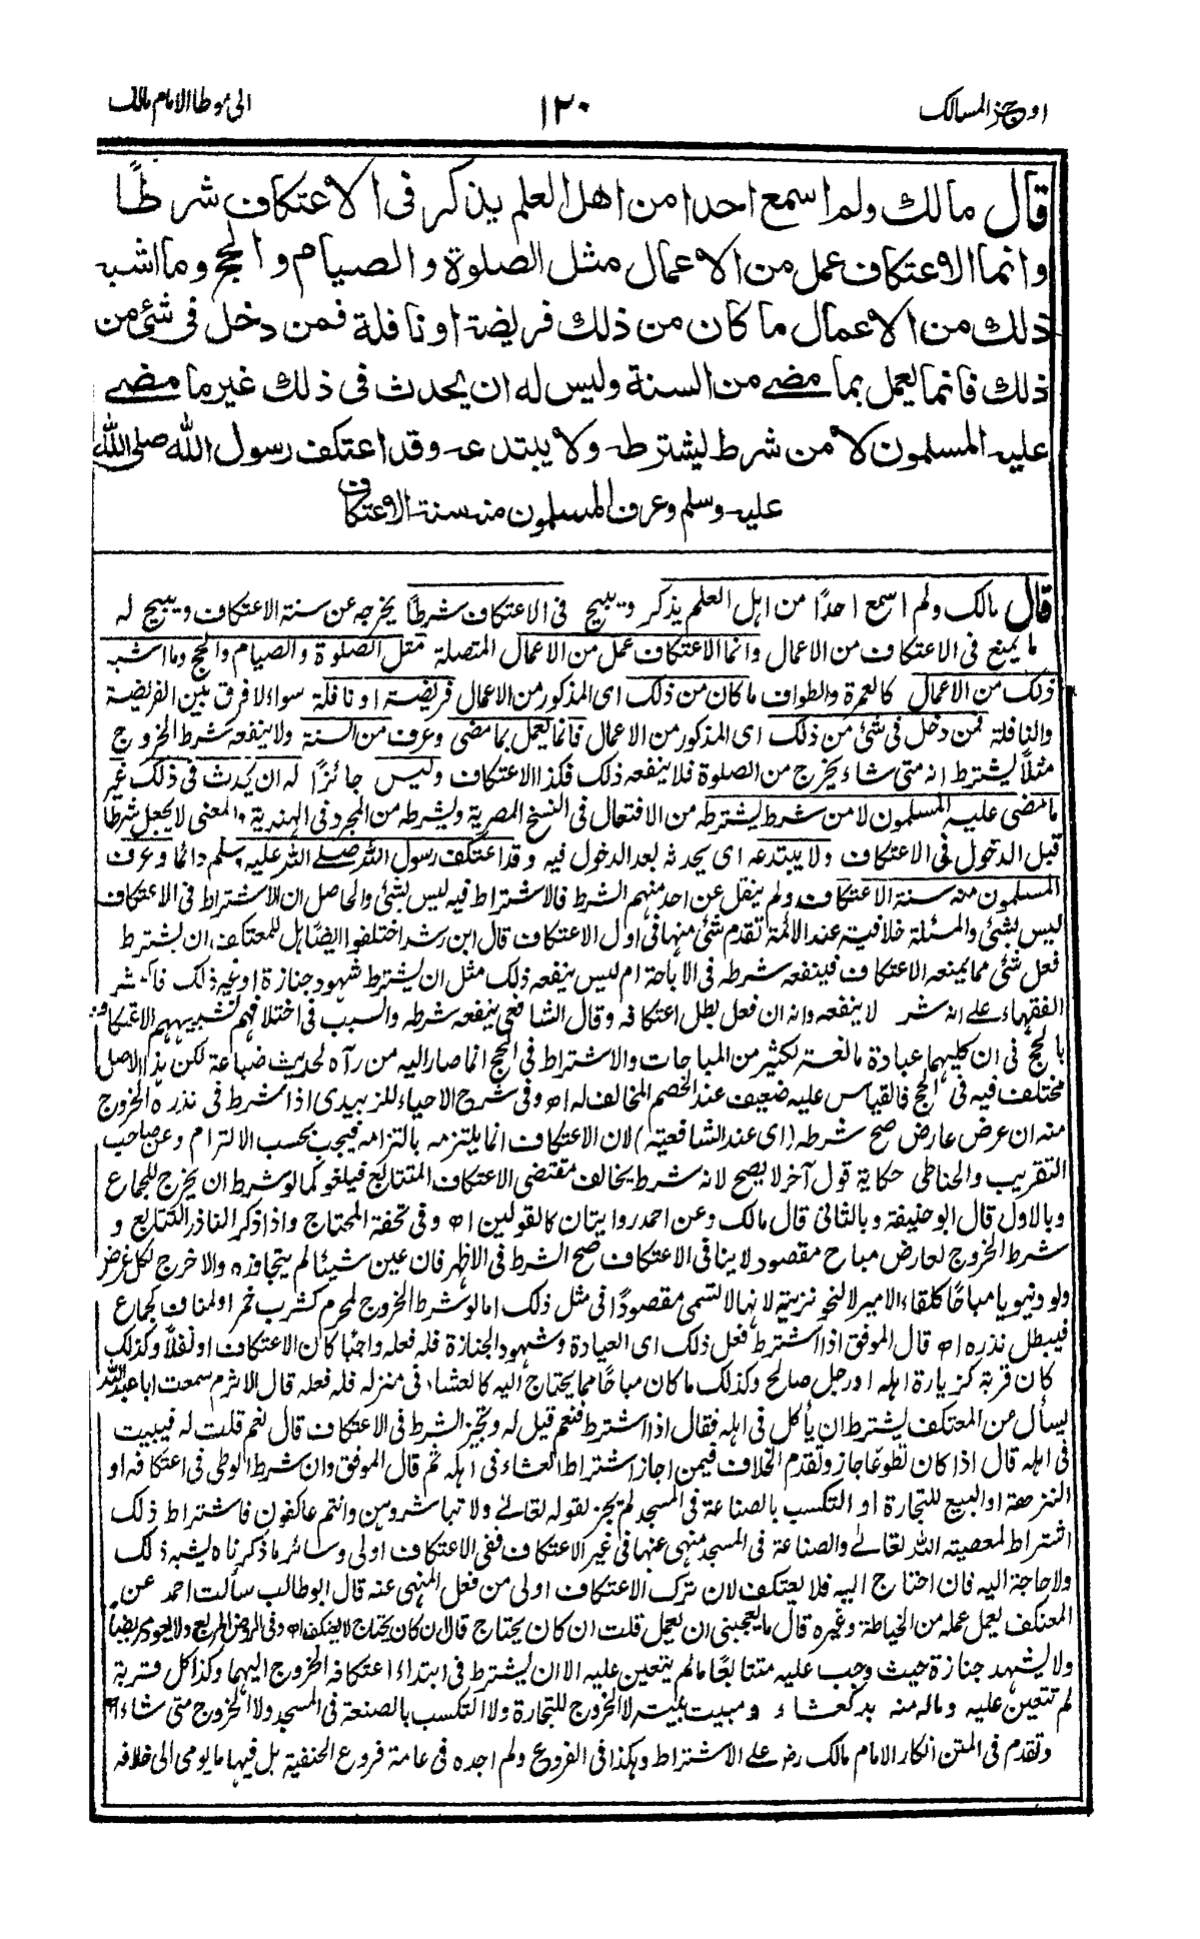 اوجز المسالك
١٢٠
الى موطا الامام مالك
قال مالك ولم اسمع احدا من اهل العلم يذكر فى الاعتكاف شرطًا
وانما الاعتكاف عمل من الاعمال مثل الصلوة والصيام والحج وما اشبه
ذلك من الاعمال ما كان من ذلك فريضة او نافلة فمن دخل فى شئ من
ذلك فانما يعمل بما مضے من السنة وليس له ان يحدث فى ذلك غير ما مضے
عليه المسلمون لا من شرط يشترطه ولا يبتدعه وقد اعتكف رسول الله صلى الله
عليه وسلم وعرف المسلمون منه سنة الاعتكاف
قال مالك ولم اسمع احدًا من اهل العلم يذكر ويبيح فى الاعتكاف شرطًا يخرجه عن سنة الاعتكاف ويبيح له
ما يمنع فى الاعتكاف من الاعمال وانما الاعتكاف عمل من الاعمال المتصلة مثل الصلوة والصيام والحج وما اشبه
ذلك من الاعمال كالعمرة والطواف ما كان من ذلك اى المذكور من الاعمال فريضة او نافلة سواء لا فرق بين الفريضة
والنافلة فمن دخل فى شئ من ذلك اى المذكور من الاعمال فانما يعمل بما مضى وعرف من السنة ولا ينفعه شرط الخروج
مثلًا يشترط انه متى شاء يخرج من الصلوة فلا ينفعه ذلك فكذا الاعتكاف وليس جائزًا له ان يحدث فى ذلك غير
ما مضى عليه المسلمون لا من شرط يشترطه من الافتعال فى النسخ المصرية ويشرطه من المجرد فى الهندية والمعنى لا يجعل شرطًا
قبل الدخول فى الاعتكاف ولا يبتدعه اى يحدثه بعد الدخول فيه وقد اعتكف رسول الله صلے الله عليه وسلم دائما وعرف
المسلمون منه سنة الاعتكاف ولم ينقل عن احد منهم الشرط فالاشتراط فيه ليس بشئ والحاصل ان الاشتراط فى الاعتكاف
ليس بشئ والمسئلة خلافية عند الائمة تقدم شئ منها فى اول الاعتكاف قال ابن رشد اختلفوا ايضًا هل للمعتكف ان يشترط
فعل شئ مما يمنعه الاعتكاف فينفعه شرطه فى الاباحة ام ليس ينفعه ذلك مثل ان يشترط شهود جنازة او غير ذلك فاكثر
الفقهاء على انه شرط لا ينفعه وانه ان فعل بطل اعتكافه وقال الشافعى ينفعه شرطه والسبب فى اختلافهم تشبيههم الاعتكاف
بالحج فى ان كليهما عبادة مانعة لكثير من المباحات والاشتراط فى الحج انما صار اليه من رآه لحديث ضباعة لكن هذا الاصل
مختلف فيه فى الحج فالقياس عليه ضعيف عند الخصم المخالف له اه وفى شرح الاحياء للزبيدى اذا شرط فى نذره الخروج
منه ان عرض عارض صح شرطه (اى عند الشافعية) لان الاعتكاف انما يلتزمه بالتزامه فيجب بحسب الالتزام وعن صاحب
التقريب والحناطى حكاية قول آخر لا يصح لانه شرط يخالف مقتضى الاعتكاف المتتابع فيلغو كما لو شرط ان يخرج للجماع
وبالاول قال ابو حنيفة وبالثانى قال مالك وعن احمد روايتان كالقولين اه وفى تحفة المحتاج واذا ذكر الناذر التتابع و
شرط الخروج لعارض مباح مقصود لا ينافى الاعتكاف صح الشرط فى الاظهر فان عين شيئا لم يتجاوزه والا خرج لكل غرض
ولو دنيويا مباحًا كلقاء الامير لا لنحو نزهة لانها لا تسمى مقصودًا فى مثل ذلك اما لو شرط الخروج لمحرم كشرب خمر او لمناف كجماع
فيبطل نذره اه قال الموفق اذا اشترط فعل ذلك اى العيادة وشهود الجنازة فله فعله واجبًا كان الاعتكاف او نفلًا وكذلك
كان قربة كزيارة اهله او رجل صالح وكذلك ما كان مباحًا مما يحتاج اليه كالعشاء فى منزله فله فعله قال الاثرم سمعت ابا عبد الله
يسأل عن المعتكف يشترط ان يأكل فى اهله فقال اذا اشترط فنعم قيل له وتجيز الشرط فى الاعتكاف قال نعم قلت له فيبيت
فى اهله قال اذا كان تطوعًا جاز وتقدم الخلاف فيمن اجاز اشتراط العشاء فى اهله ثم قال الموفق وان شرط الوطى فى اعتكافه او
النزهة او البيع للتجارة او التكسب بالصناعة فى المسجد لم يجز لقوله تعالى ولا تباشروهن وانتم عاكفون فاشتراط ذلك
اشتراط لمعصية الله تعالى والصناعة فى المسجد منهى عنها فى غير الاعتكاف ففى الاعتكاف اولى وسائر ما ذكرناه يشبه ذلك
ولا حاجة اليه فان احتاج اليه فلا يعتكف لان ترك الاعتكاف اولى من فعل المنهى عنه قال ابو طالب سألت احمد عن
المعتكف يعمل عمله من الخياطة وغيره قال ما يعجبنى ان يعمل قلت ان كان يحتاج قال ان كان يحتاج لا يعتكف اه وفى الروض المربع ولا يعود مريضًا
ولا يشهد جنازة حيث وجب عليه متتابعًا ما لم يتعين عليه الا ان يشترط فى ابتداء اعتكافه الخروج اليهما وكذا كل قربة
لم تتعين عليه وما له منه بد كعشاء ومبيت ببيته لا الخروج للتجارة ولا التكسب بالصنعة فى المسجد ولا الخروج متى شاء اه
وتقدم فى المتن انكار الامام مالك رض على الاشتراط وهكذا فى الفروع ولم اجده فى عامة فروع الحنفية بل فيها ما يومى الى خلافه